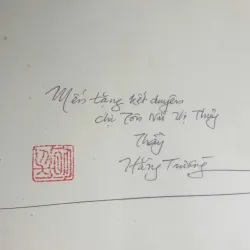 Mến tặng kết duyên
chị Tôn Nữ Vị Thủy
Thầy
Hằng Trường